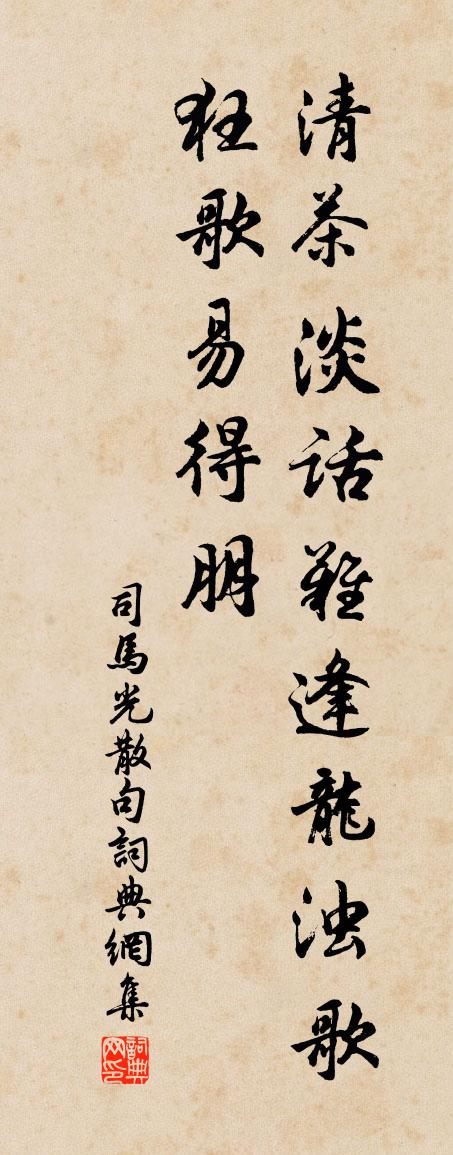 清茶淡話難逢龍浊歌
狂歌易得朋
司馬光散句詞典網集
詞典
网印